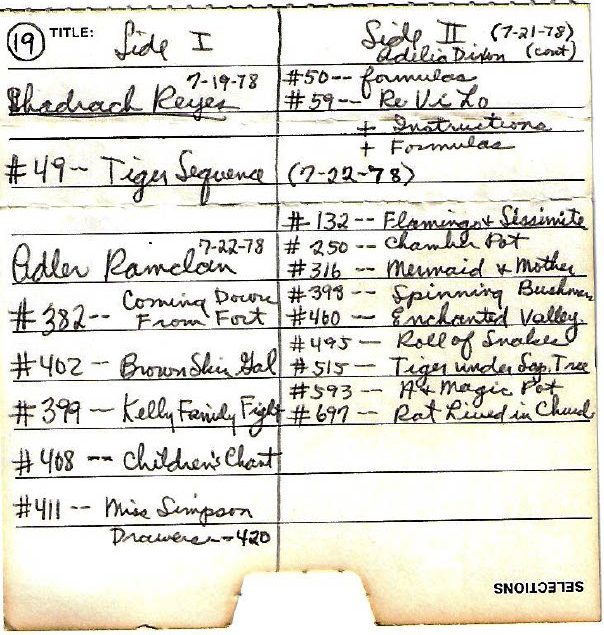 19 TITLE: Side I
7-19-78
Shadrach Reyes
#49-- Tiger Sequence
7-22-78
Adler Ramclan
#382-- Coming Down
From Fort
#402 - Brown Skin Gal
#399 - Kelly Family Fight
#408 -- Children's Chant
#411 -- Miss Simpson
Drawers - 420
Side II (7-21-78)
Adelia Dixon (cont)
#50-- formulas
#59-- Re Vi Lo
+ Instructions
+ Formulas
(7-22-78)
#132 -- Flamingo & Sissimite
#250 -- Chamber Pot
#316 -- Mermaid & Mother
#398 -- Spinning Bushmen
#460 -- Enchanted Valley
#495 -- Roll of Snakes
#515 -- Tiger under Sap. Tree
#593 -- A & Magic Pot
#697 -- Rat Lived in Church
SELECTIONS